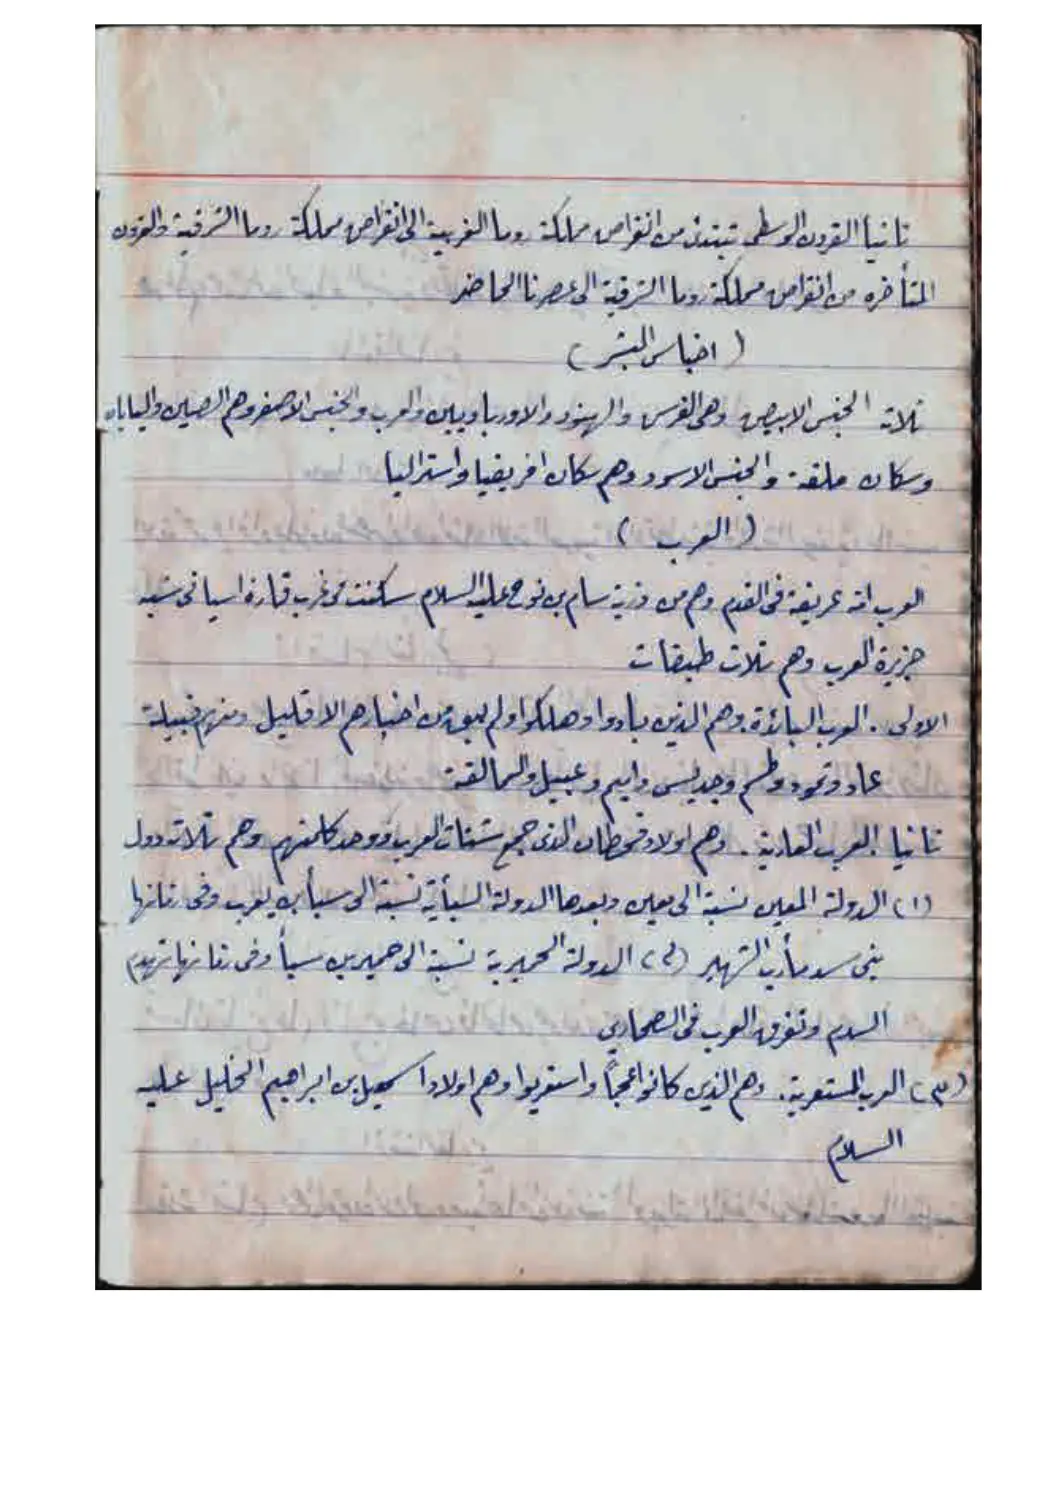 ثانياً القرون الوسطى تبتدئ من انقراص مملكة روما الغربية الى انقراص مملكة روما الشرقية والقرون
المتأخره من انقراص مملكة روما الشرقية الى عصرنا الحاضر
( اجناس البشر )
ثلاثه الجنس الابيص وهى الفرس والهنود والاورباويين والعرب والجنس الاصفر وهم الصين واليابان
وسكان ملقه والجنس الاسود وهم سكان افريقيا واستراليا
( العرب )
العرب امه عريقة فى القدم وهم من ذرية سام بن نوح عليه السلام سكنت فى غرب قارة اسيا فى شبه
جزيرة العرب وهم ثلاث طبقات
الاولى . العرب البائدة . وهم الذين بادوا وهلكوا ولم يبق من اخبارهم الا قليل ومنهم قبيلة
عاد وثمود وطسم وجديس واميم وعبيل والعمالقة
ثانيا العرب العاربة . وهم اولاد قحطان الذى جمع شتات العرب ووحد كلمتهم وهم ثلاث دول
(١) الدولة المعين نسبة الى معين وبعدها الدولة السبأية نسبة الى سبأ بن يعرب وفى زمانها
بنى سد مأرب الشهير (٢) الدولة الحميرية نسبة الى حمير بن سبأ وفى زمانها تهدم
السد وتفرق العرب فى الصحارى
(٣) العرب المستعربة . وهم الذين كانوا عجماً واستعربوا وهم اولاد اسمعيل بن ابراهيم الخليل عليه
السلام